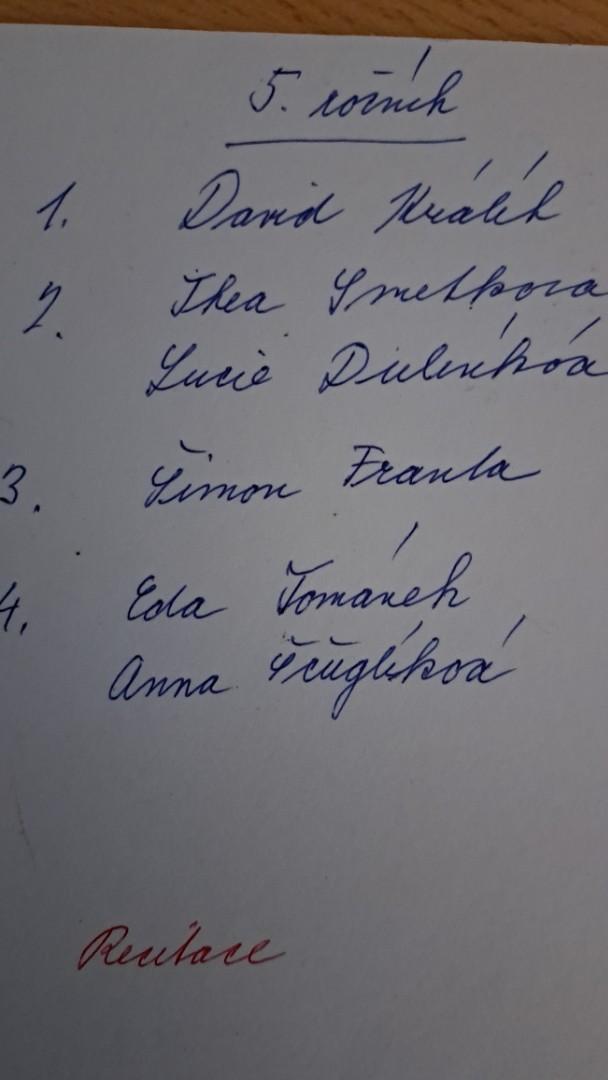 5. ročník
1. David Králík
2. Thea Smetkova
Lucie
3. Šimon Franta
4. Eda Tománek
Anna Ščuglíková
Recitace